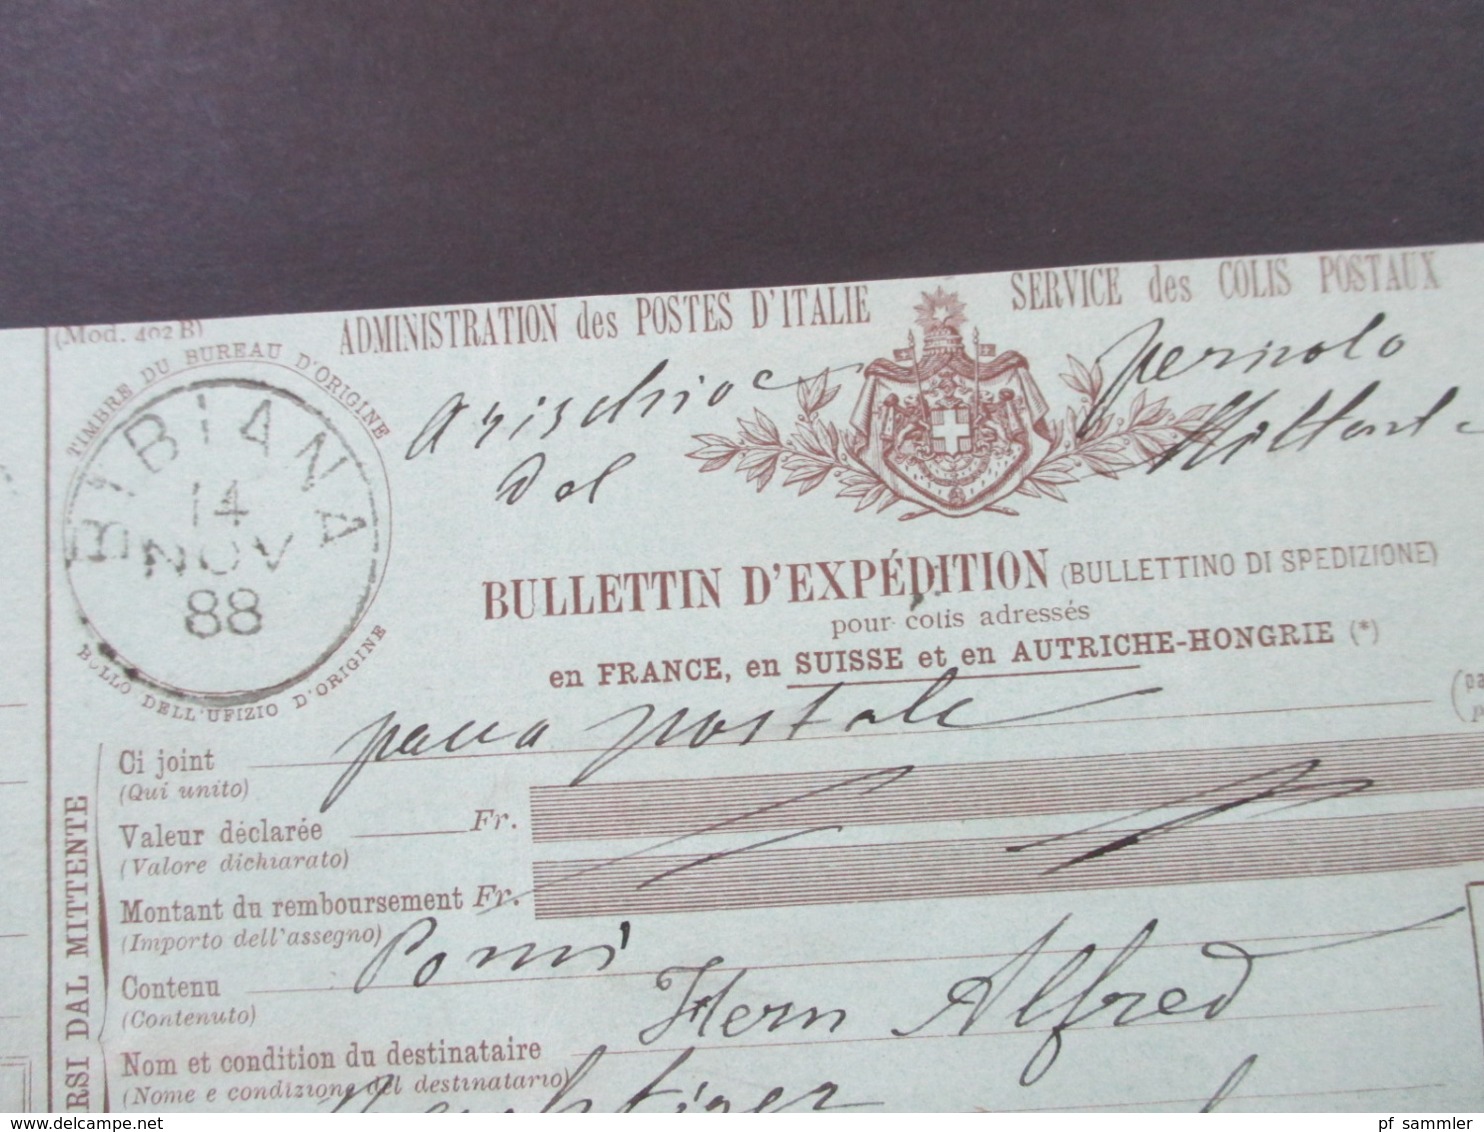 (Mod. 402 B)
ADMINISTRATION des POSTES D'ITALIE
SERVICE des COLIS POSTAUX
TIMBRE DU BUREAU D'ORIGINE
BIBIANA
14
NOV
88
BOLLO DELL'UFIZIO D'ORIGINE
a rischio e pericolo
del Mittente
BULLETTIN D'EXPÉDITION (BULLETTINO DI SPEDIZIONE)
pour colis adressés
en FRANCE, en SUISSE et en AUTRICHE-HONGRIE (*)
Ci joint pacco postale
(Qui unito)
Valeur déclarée Fr.
(Valore dichiarato)
Montant du remboursement Fr.
(Importo dell'assegno)
Contenu Pomi
(Contenuto)
Nom et condition du destinataire Herrn Alfred
(Nome e condizione del destinatario)
RSI DAL MITTENTE
www.delcampe.net
pf_sammler